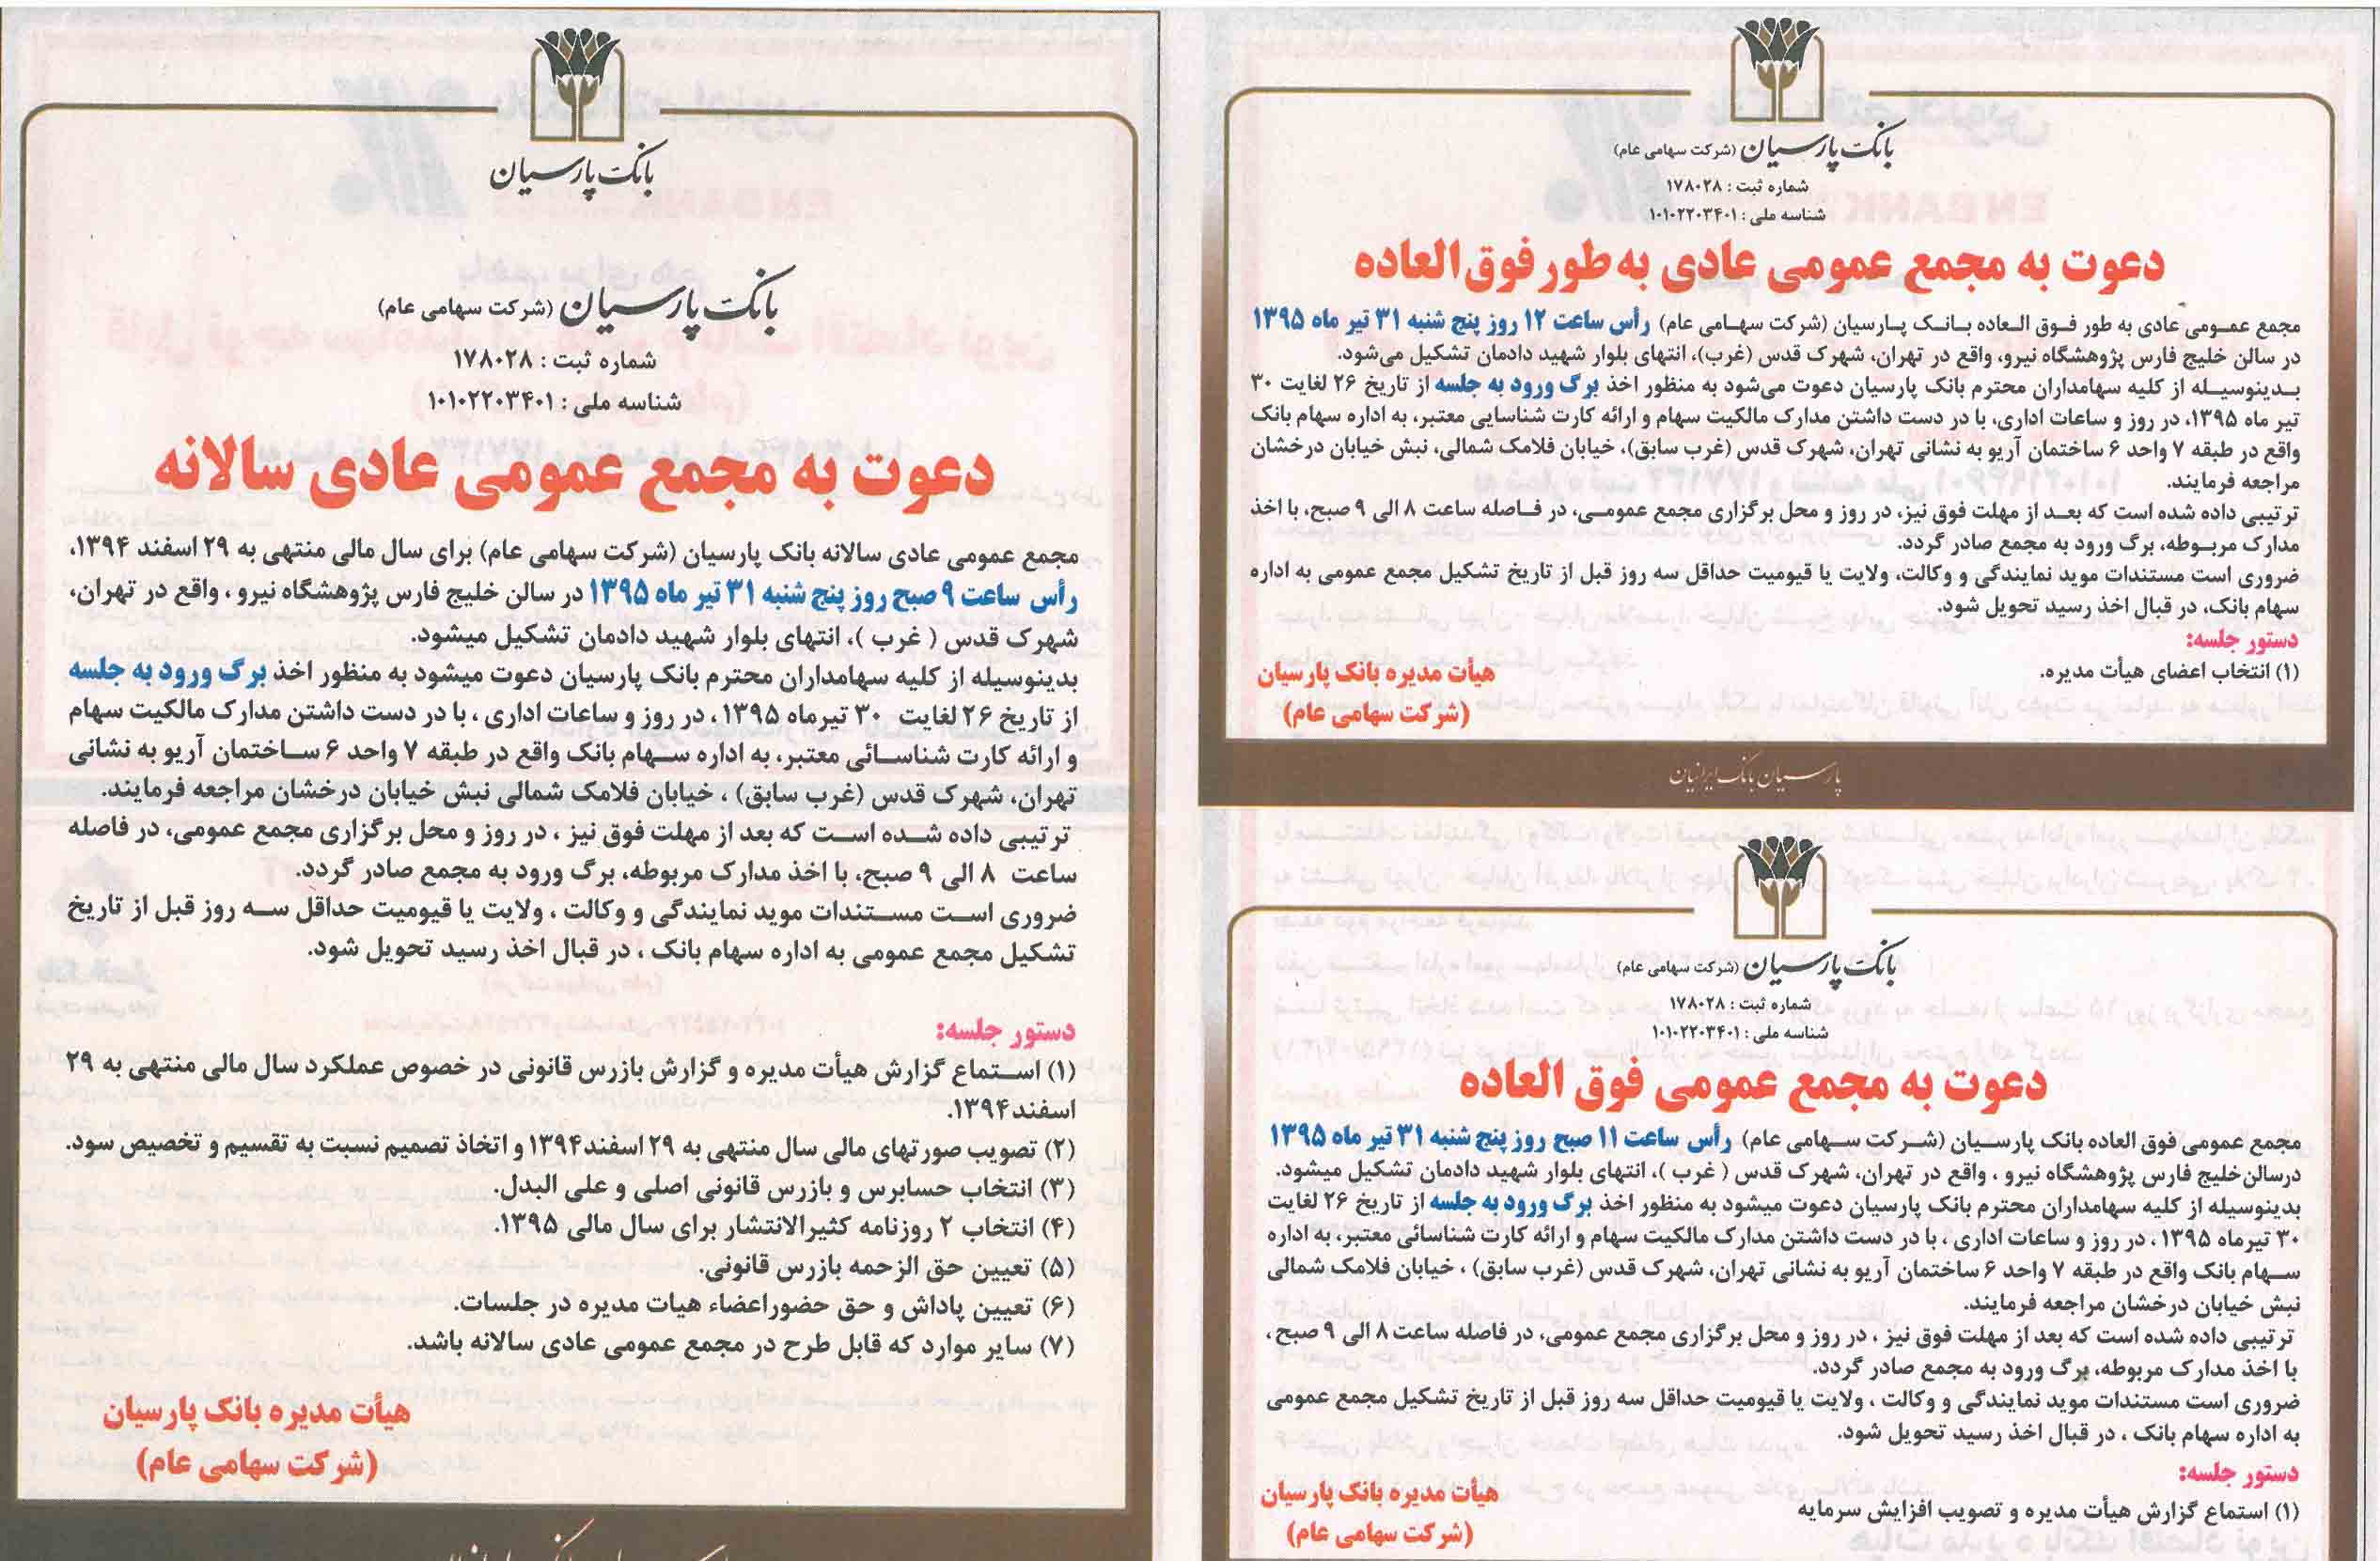 بانک پارسیان (شرکت سهامی عام)
شماره ثبت : ۱۷۸۰۲۸
شناسه ملی : ۱۰۱۰۲۲۰۳۴۰۱
دعوت به مجمع عمومی عادی به طور فوق العاده
مجمع عمومی عادی به طور فوق العاده بانک پارسیان (شرکت سهامی عام) رأس ساعت ۱۲ روز پنج شنبه ۳۱ تیر ماه ۱۳۹۵
در سالن خلیج فارس پژوهشگاه نیرو، واقع در تهران، شهرک قدس (غرب)، انتهای بلوار شهید دادمان تشکیل می‌شود.
بدینوسیله از کلیه سهامداران محترم بانک پارسیان دعوت می‌شود به منظور اخذ برگ ورود به جلسه از تاریخ ۲۶ لغایت ۳۰
تیر ماه ۱۳۹۵، در روز و ساعات اداری، با در دست داشتن مدارک مالکیت سهام و ارائه کارت شناسایی معتبر، به اداره سهام بانک
واقع در طبقه ۷ واحد ۶ ساختمان آریو به نشانی تهران، شهرک قدس (غرب سابق)، خیابان فلامک شمالی، نبش خیابان درخشان
مراجعه فرمایند.
ترتیبی داده شده است که بعد از مهلت فوق نیز، در روز و محل برگزاری مجمع عمومی، در فاصله ساعت ۸ الی ۹ صبح، با اخذ
مدارک مربوطه، برگ ورود به مجمع صادر گردد.
ضروری است مستندات موید نمایندگی و وکالت، ولایت یا قیومیت حداقل سه روز قبل از تاریخ تشکیل مجمع عمومی به اداره
سهام بانک، در قبال اخذ رسید تحویل شود.
دستور جلسه:
(۱) انتخاب اعضای هیأت مدیره.
هیأت مدیره بانک پارسیان
(شرکت سهامی عام)
پارسیان بانک ایرانیان
بانک پارسیان (شرکت سهامی عام)
شماره ثبت : ۱۷۸۰۲۸
شناسه ملی : ۱۰۱۰۲۲۰۳۴۰۱
دعوت به مجمع عمومی فوق العاده
مجمع عمومی فوق العاده بانک پارسیان (شرکت سهامی عام) رأس ساعت ۱۱ صبح روز پنج شنبه ۳۱ تیر ماه ۱۳۹۵
درسالن خلیج فارس پژوهشگاه نیرو ، واقع در تهران، شهرک قدس ( غرب )، انتهای بلوار شهید دادمان تشکیل میشود.
بدینوسیله از کلیه سهامداران محترم بانک پارسیان دعوت میشود به منظور اخذ برگ ورود به جلسه از تاریخ ۲۶ لغایت
۳۰ تیرماه ۱۳۹۵ ، در روز و ساعات اداری ، با در دست داشتن مدارک مالکیت سهام و ارائه کارت شناسائی معتبر، به اداره
سهام بانک واقع در طبقه ۷ واحد ۶ ساختمان آریو به نشانی تهران، شهرک قدس (غرب سابق) ، خیابان فلامک شمالی
نبش خیابان درخشان مراجعه فرمایند.
ترتیبی داده شده است که بعد از مهلت فوق نیز ، در روز و محل برگزاری مجمع عمومی، در فاصله ساعت ۸ الی ۹ صبح ،
با اخذ مدارک مربوطه، برگ ورود به مجمع صادر گردد.
ضروری است مستندات موید نمایندگی و وکالت ، ولایت یا قیومیت حداقل سه روز قبل از تاریخ تشکیل مجمع عمومی
به اداره سهام بانک ، در قبال اخذ رسید تحویل شود.
دستور جلسه:
(۱) استماع گزارش هیأت مدیره و تصویب افزایش سرمایه
هیأت مدیره بانک پارسیان
(شرکت سهامی عام)
بانک پارسیان
بانک پارسیان (شرکت سهامی عام)
شماره ثبت : ۱۷۸۰۲۸
شناسه ملی : ۱۰۱۰۲۲۰۳۴۰۱
دعوت به مجمع عمومی عادی سالانه
مجمع عمومی عادی سالانه بانک پارسیان (شرکت سهامی عام) برای سال مالی منتهی به ۲۹ اسفند ۱۳۹۴،
رأس ساعت ۹ صبح روز پنج شنبه ۳۱ تیر ماه ۱۳۹۵ در سالن خلیج فارس پژوهشگاه نیرو ، واقع در تهران،
شهرک قدس ( غرب )، انتهای بلوار شهید دادمان تشکیل میشود.
بدینوسیله از کلیه سهامداران محترم بانک پارسیان دعوت میشود به منظور اخذ برگ ورود به جلسه
از تاریخ ۲۶ لغایت ۳۰ تیرماه ۱۳۹۵ ، در روز و ساعات اداری ، با در دست داشتن مدارک مالکیت سهام
و ارائه کارت شناسائی معتبر، به اداره سهام بانک واقع در طبقه ۷ واحد ۶ ساختمان آریو به نشانی
تهران، شهرک قدس (غرب سابق) ، خیابان فلامک شمالی نبش خیابان درخشان مراجعه فرمایند.
ترتیبی داده شده است که بعد از مهلت فوق نیز ، در روز و محل برگزاری مجمع عمومی، در فاصله
ساعت ۸ الی ۹ صبح، با اخذ مدارک مربوطه، برگ ورود به مجمع صادر گردد.
ضروری است مستندات موید نمایندگی و وکالت ، ولایت یا قیومیت حداقل سه روز قبل از تاریخ
تشکیل مجمع عمومی به اداره سهام بانک ، در قبال اخذ رسید تحویل شود.
دستور جلسه:
(۱) استماع گزارش هیأت مدیره و گزارش بازرس قانونی در خصوص عملکرد سال مالی منتهی به ۲۹
اسفند ۱۳۹۴.
(۲) تصویب صورتهای مالی سال منتهی به ۲۹ اسفند ۱۳۹۴ و اتخاذ تصمیم نسبت به تقسیم و تخصیص سود.
(۳) انتخاب حسابرس و بازرس قانونی اصلی و علی البدل.
(۴) انتخاب ۲ روزنامه کثیرالانتشار برای سال مالی ۱۳۹۵.
(۵) تعیین حق الزحمه بازرس قانونی.
(۶) تعیین پاداش و حق حضوراعضاء هیات مدیره در جلسات.
(۷) سایر موارد که قابل طرح در مجمع عمومی عادی سالانه باشد.
هیأت مدیره بانک پارسیان
(شرکت سهامی عام)